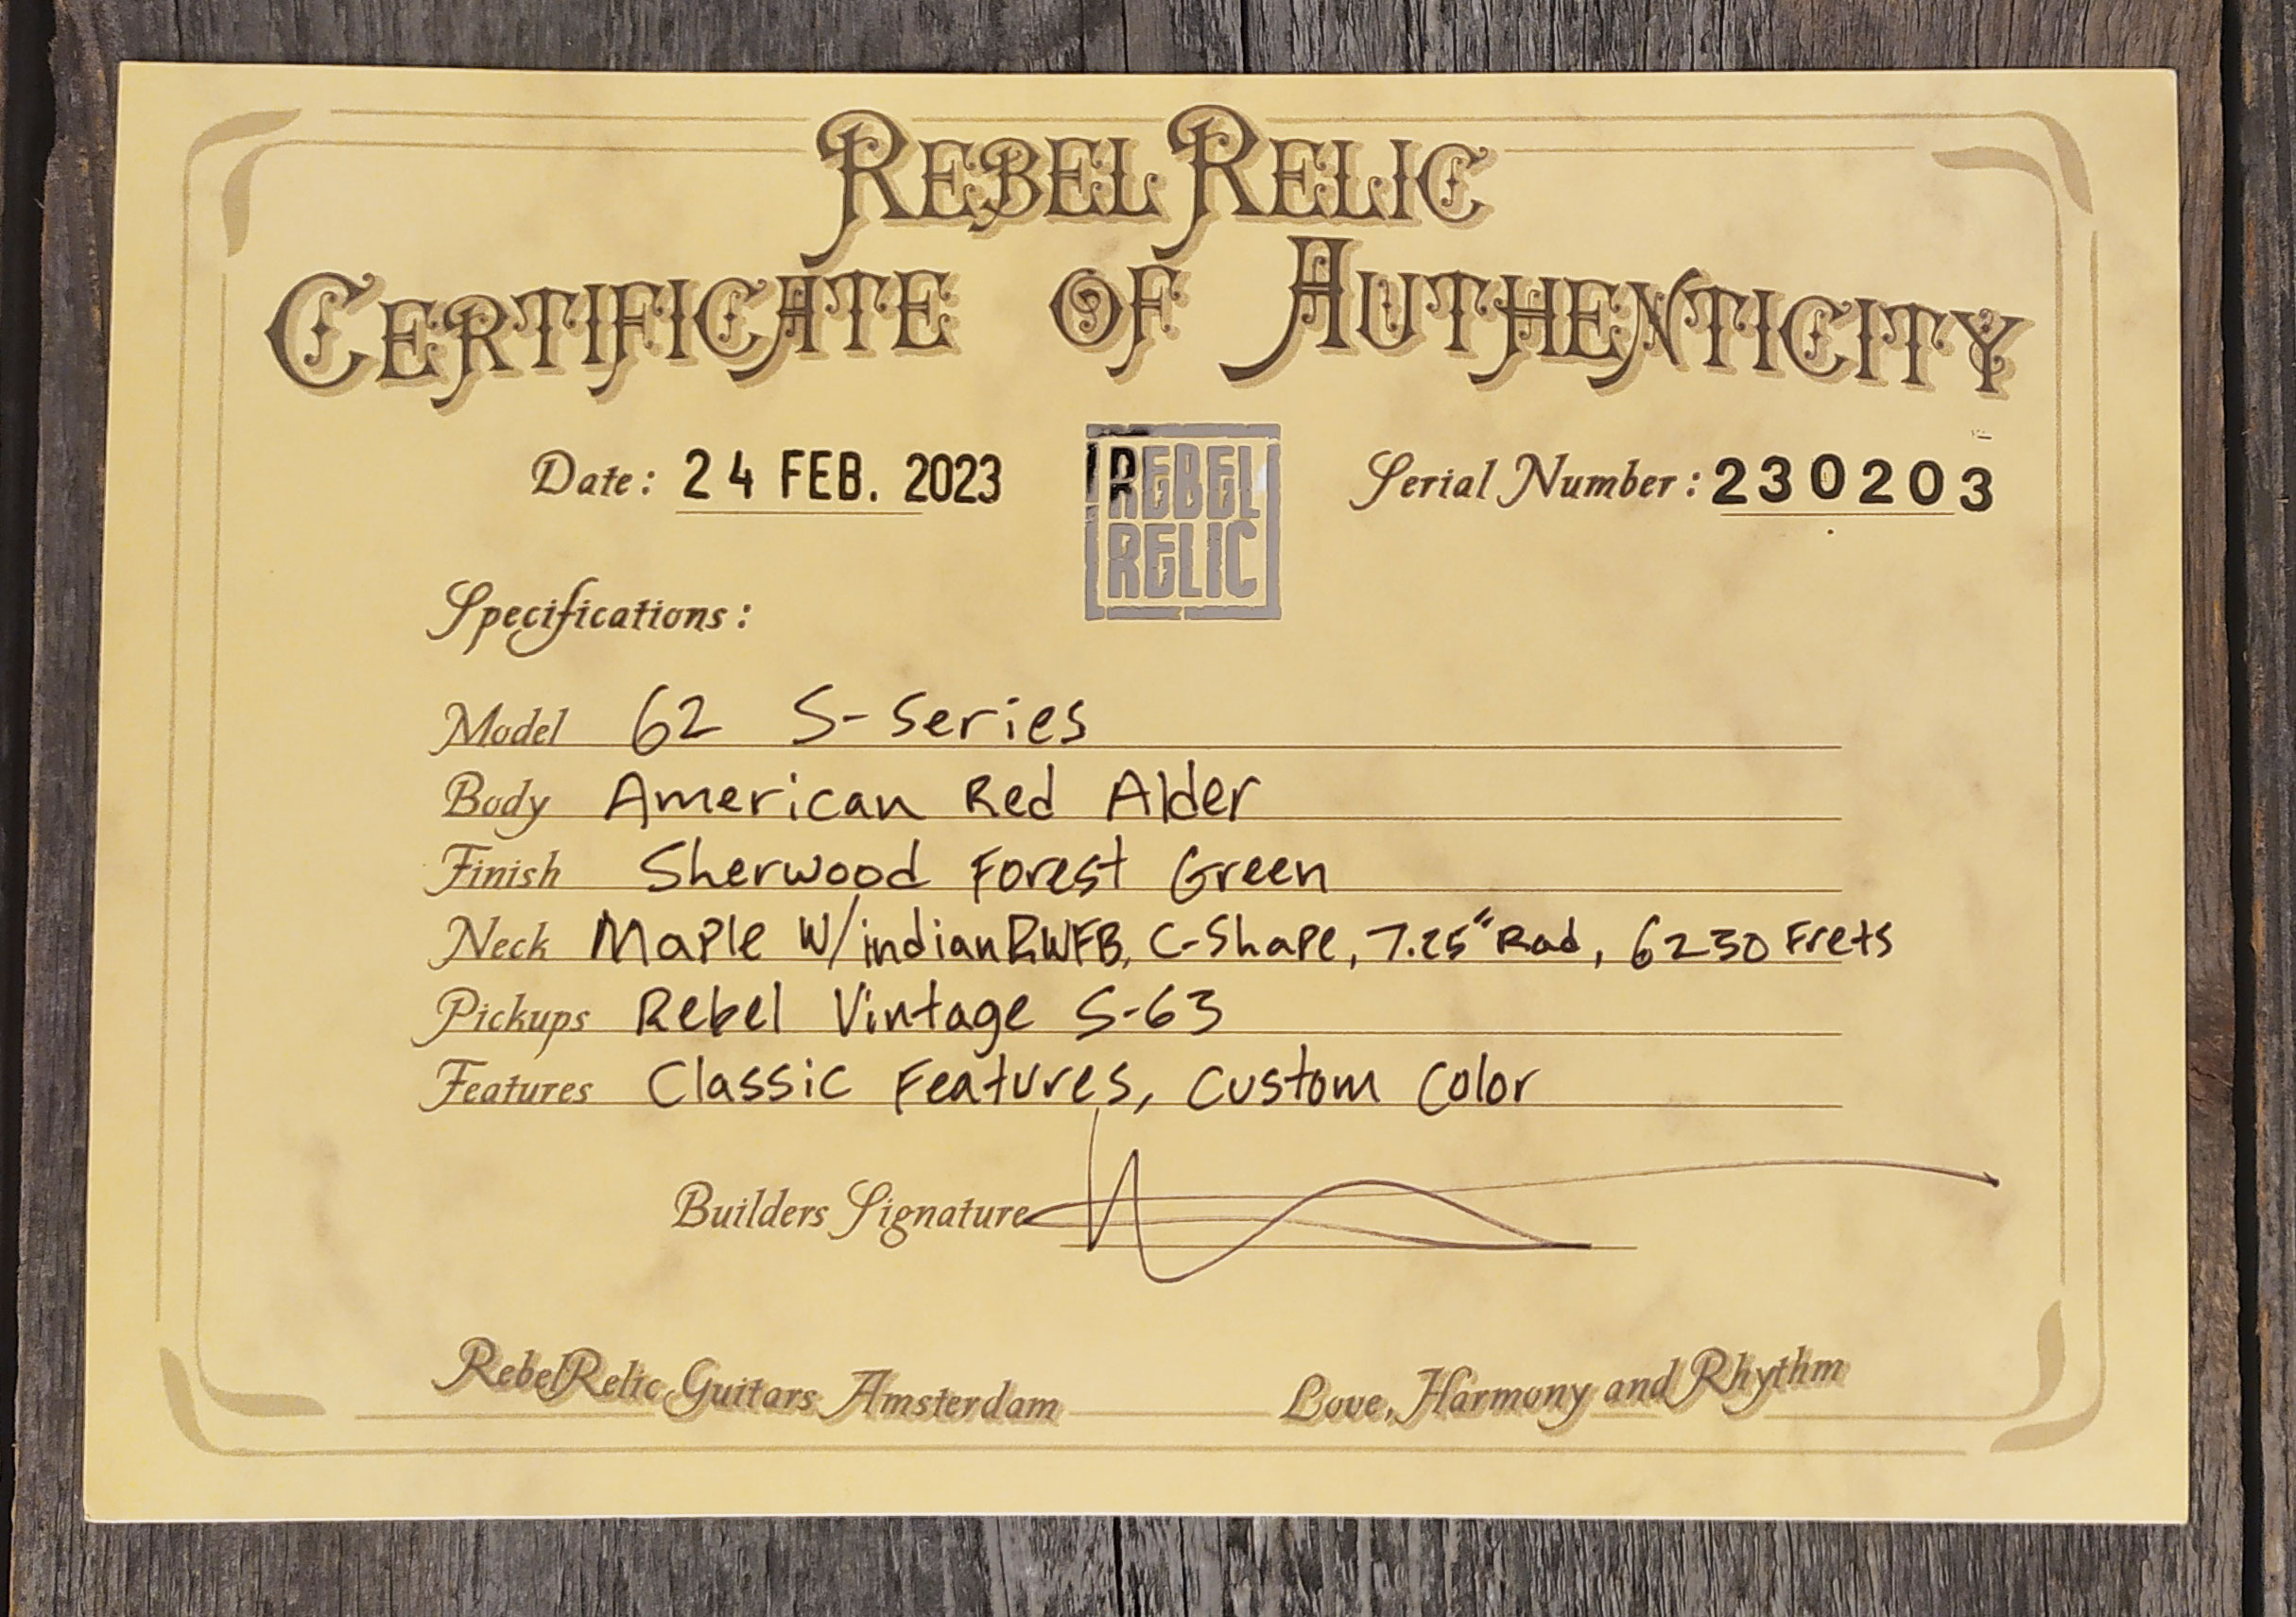 REBEL RELIC
CERTIFICATE OF AUTHENTICITY
Date: 24 FEB. 2023
REBEL
RELIC
Serial Number: 230203
Specifications:
Model 62 S-Series
Body American Red Alder
Finish Sherwood Forest Green
Neck Maple W/indian RWFB, C-Shape, 7.25" Rad, 6230 Frets
Pickups Rebel Vintage S-63
Features Classic Features, Custom Color
Builders Signature
RebelRelic Guitars Amsterdam
Love, Harmony and Rhythm